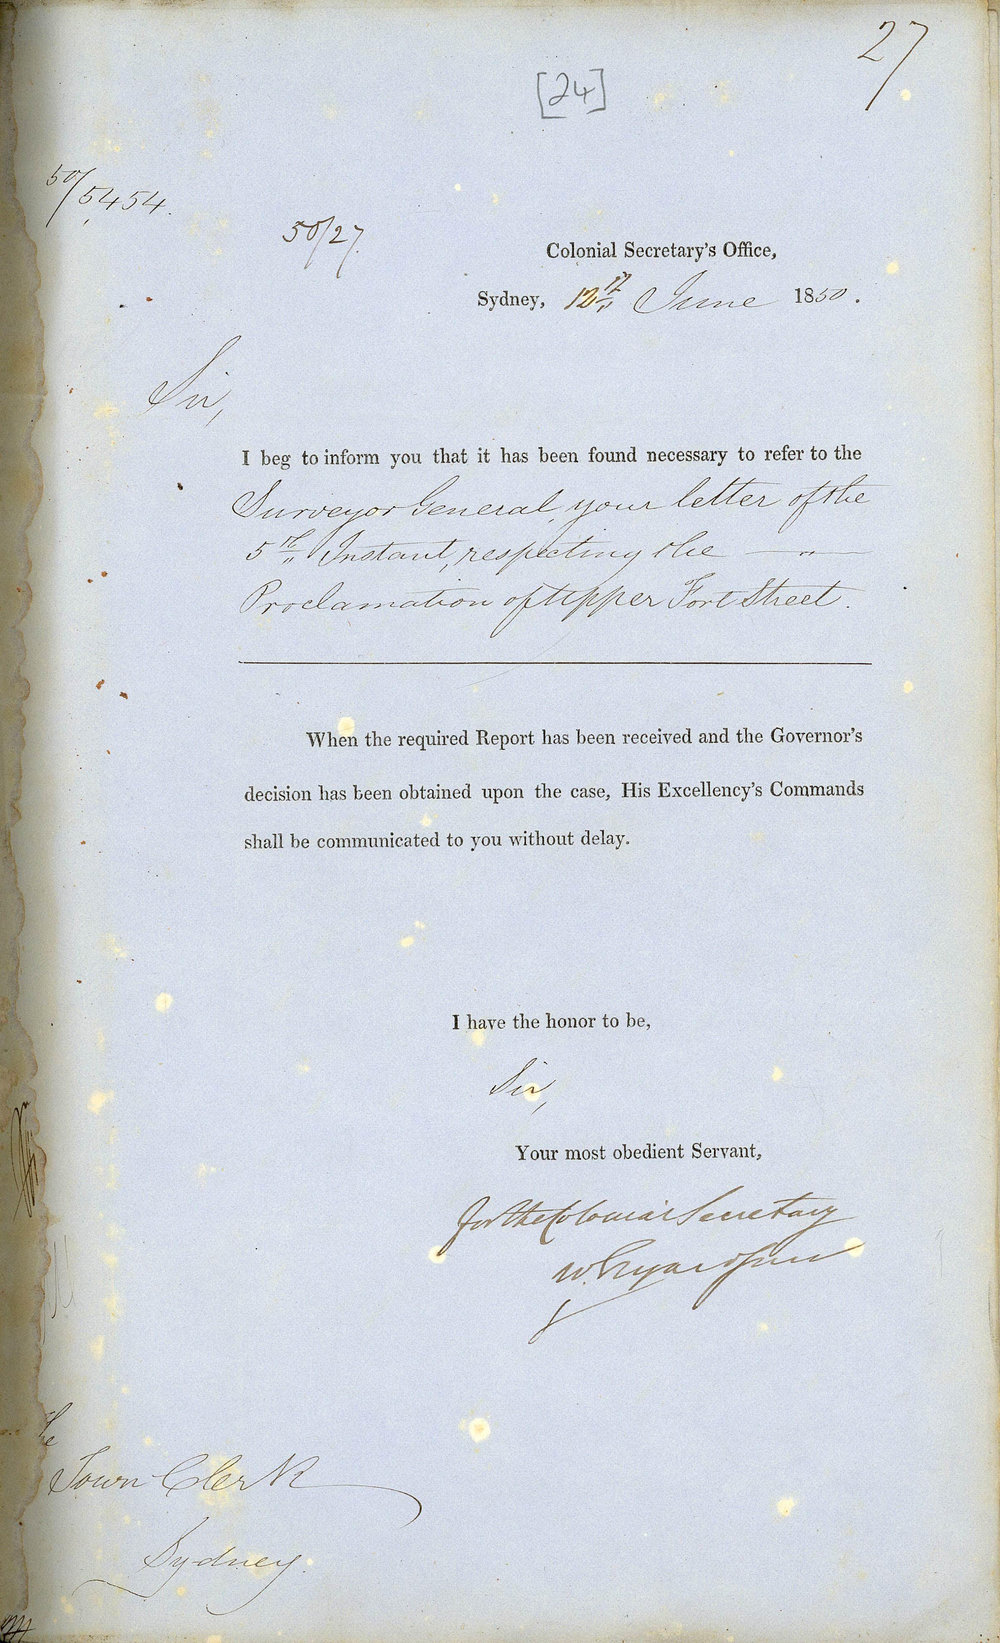 27
[24]
50/5454.
50/27.
Colonial Secretary's Office,
Sydney, 12th June 1850.
Sir,
I beg to inform you that it has been found necessary to refer to the
Surveyor General, your letter of the
5th Instant, respecting the — " —
Proclamation of Upper Fort Street.
When the required Report has been received and the Governor's
decision has been obtained upon the case, His Excellency's Commands
shall be communicated to you without delay.
I have the honor to be,
Sir,
Your most obedient Servant,
for the Colonial Secretary
W.
The
Town Clerk
Sydney.